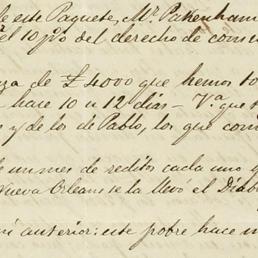 de este Paquete, Mr. Pakenham
el 10 p% del derecho de consu
za de £4000 que hemos to
hace 10 u 12 dias – Va. que
s y de los de Pablo, los que com
de un mes de reditos cada uno q
Nueva Orleans se la llevó el Diab
mi anterior: este pobre hace m